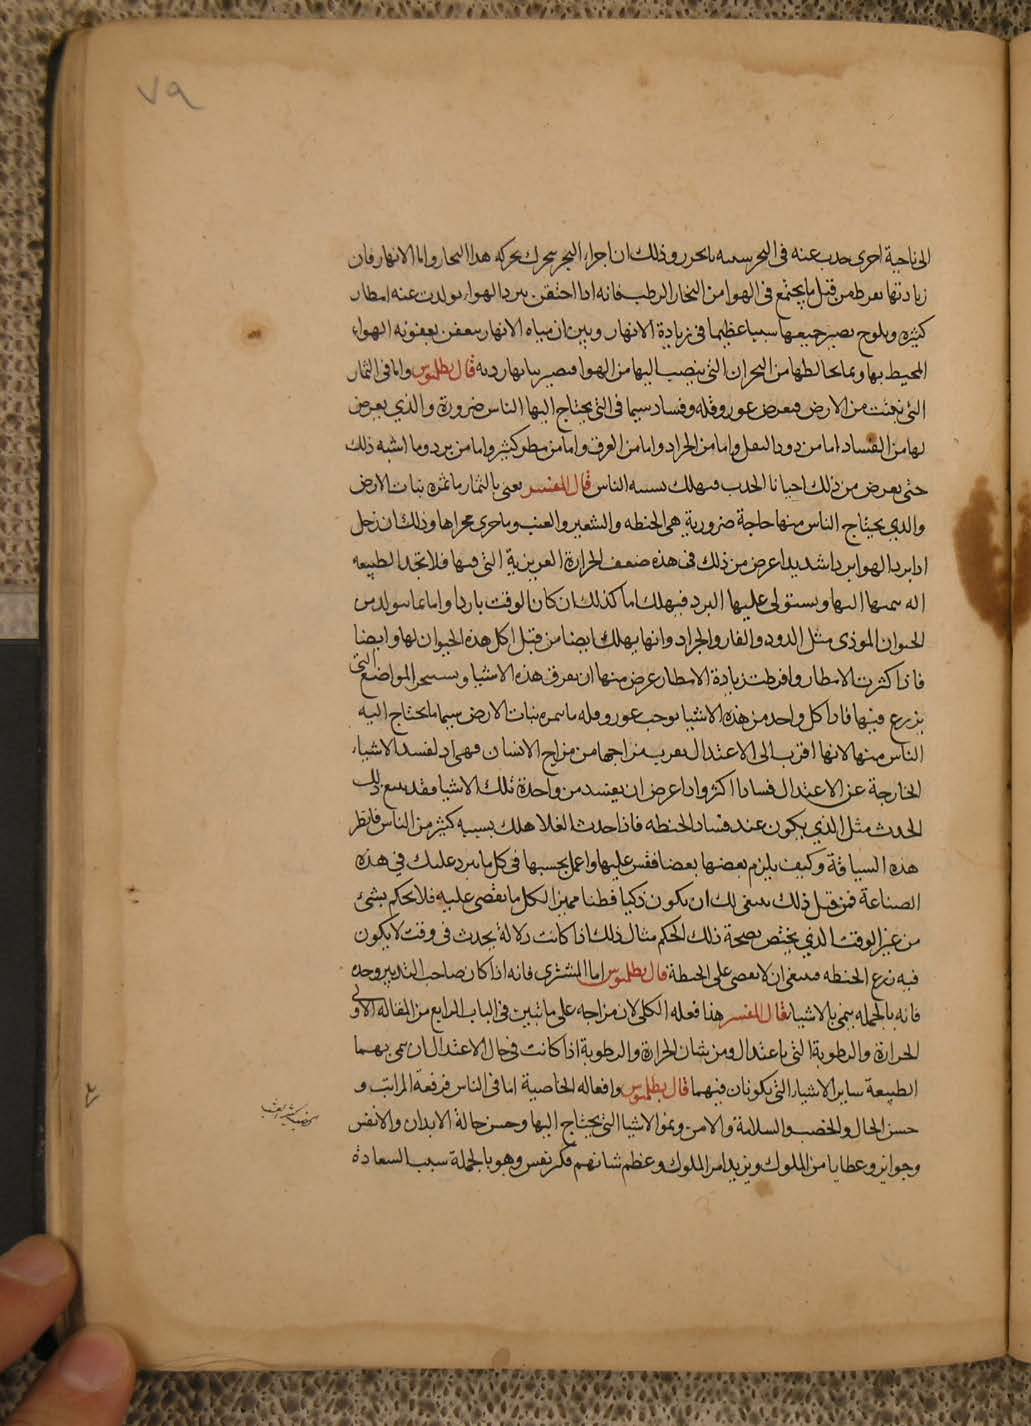 ٧٩
الى ناحية اخرى حدث عنه في البحر وذلك ان اجزاء البحر تتحرك بحركة هذا البخار واما الانهار فان
زيادتها تفرط من قبل ما يجتمع في الهوا من البخار الرطب فانه اذا احتقن ببرد الهواء تولدت عنه امطار
كثيرة ويلوح تصير جميعها سببا عظيما في زيادة الانهار وبين ان مياه الانهار تتعفن بعفونة الهواء
المحيط بها وبما يخالطها من البحران التي ينصب اليها من الهوا فتصير قال بطلميوس واما في الثمار
التي تنبت من الارض فيعرض عوز وقلة وفساد سيما في التي يحتاج اليها الناس ضرورة والذي يعرض
لها من الفساد اما من دود البقل واما من الجراد واما من الغرق واما من مطر كثير واما من برد وما اشبه ذلك
حتى يعرض من ذلك احيانا الجدب فيهلك بسببه الناس قال المفسر يعني بالثمار ما تثمره نبات الارض
والذي يحتاج الناس منها حاجة ضرورية هي الحنطه والشعير والعنب وما جرى مجراها وذلك ان زحل
اذا برد الهوا بردا شديدا عرض من ذلك في هذه ضعف الحرارة الغريزية التي فيها فلا تجد الطبيعه
اله اليها ويستولى عليها البرد فيهلك اما كذلك ان كان الوقت باردا واما بما يتولد من
الحيوان الموذى مثل الدود والفار والجراد وانها يهلك ايضا من قبل اكل هذه الحيوان لها وايضا
فاذا كثرت الامطار وافرطت زيادة الامطار عرض منها ان تغرق هذه الاشيا المواضع التي
يزرع فيها فاذا كل واحد من هذه الاشيا يوجب عوز وقله ما تثمره نبات الارض سيما ما يحتاج اليه
الناس منها لانها اقرب الى الاعتدال بقرب مزاجها من مزاج الانسان فهي اذ تفسد الاشياء
الخارجة عن الاعتدال فسادا اكثر واذا عرض ان يفسد من واحدة تلك الاشيا فقد يتبع ذلك
الحدث مثل الذي يكون عند فساد الحنطه فاذا حدث الغلا هلك بسببه كثير من الناس فانظر
هذه السياقة وكيف يلزم بعضها بعضا فقس عليها واعمل بحسبها في كل ما يرد عليك في هذه
الصناعة فمن قبل ذلك ينبغي لك ان تكون ذكيا فطنا مميزا لكل ما تقضى عليه فلا تحكم بشئ
من غير الوقت الذي يختص بصحة ذلك الحكم مثال ذلك اذا كانت دلالة يحدث في وقت لا يكون
فيه زرع الحنطه فينبغي ان لا تقضى على الحنطة قال بطلميوس اما المشترى فانه اذا كان صاحب التدبير وحده
فانه بالجمله ينمي الاشيا قال المفسر هذا فعله الكلي لان مزاجه على ما تبين في الباب الرابع من المقاله الاولى
الحرارة والرطوبة التي باعتدال ومن شان الحرارة والرطوبة اذا كانت في حال الاعتدال ان تنمي بهما
الطبيعة ساير الاشياء التي يكونان فيهما قال بطلميوس وافعاله الخاصية اما في الناس فرفعة المراتب و
حسن الحال والخصب والسلامة والامن ونمو الاشيا التي يحتاج اليها وحسن حالة الابدان والانفس
وجوايز وعطايا من الملوك ويزيد امر الملوك وعظم شانهم فكر نفس وهو بالجملة سبب السعادة